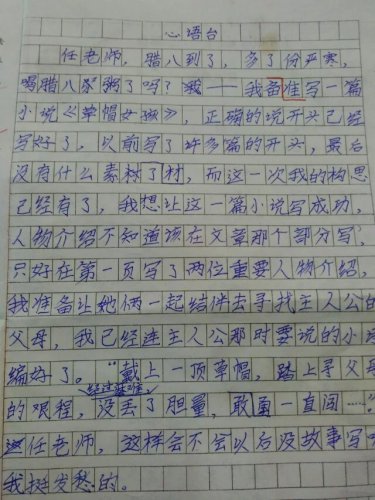 心语台
任老师，腊八到了，多了份严寒，
喝腊八粥了吗？我——我准备写一篇
小说《草帽女孩》，正确的说开头已经
写好了，以前写了许多篇的开头，最后
没有什么素材了材，而这一次我的构思
已经有了，我想让这一篇小说写成功，
人物介绍不知道该在文章那个部分写，
只好在第一页写了两位重要人物介绍，
我准备让她俩一起结伴去寻找主人公的
父母，我已经连主人公那时要说的小诗
编好了。“戴上一顶草帽，踏上寻父母
经过艰难
的艰程，没丢了胆量，敢勇一直闯……”
任老师，这样会不会以后没故事写
我挺发愁的。